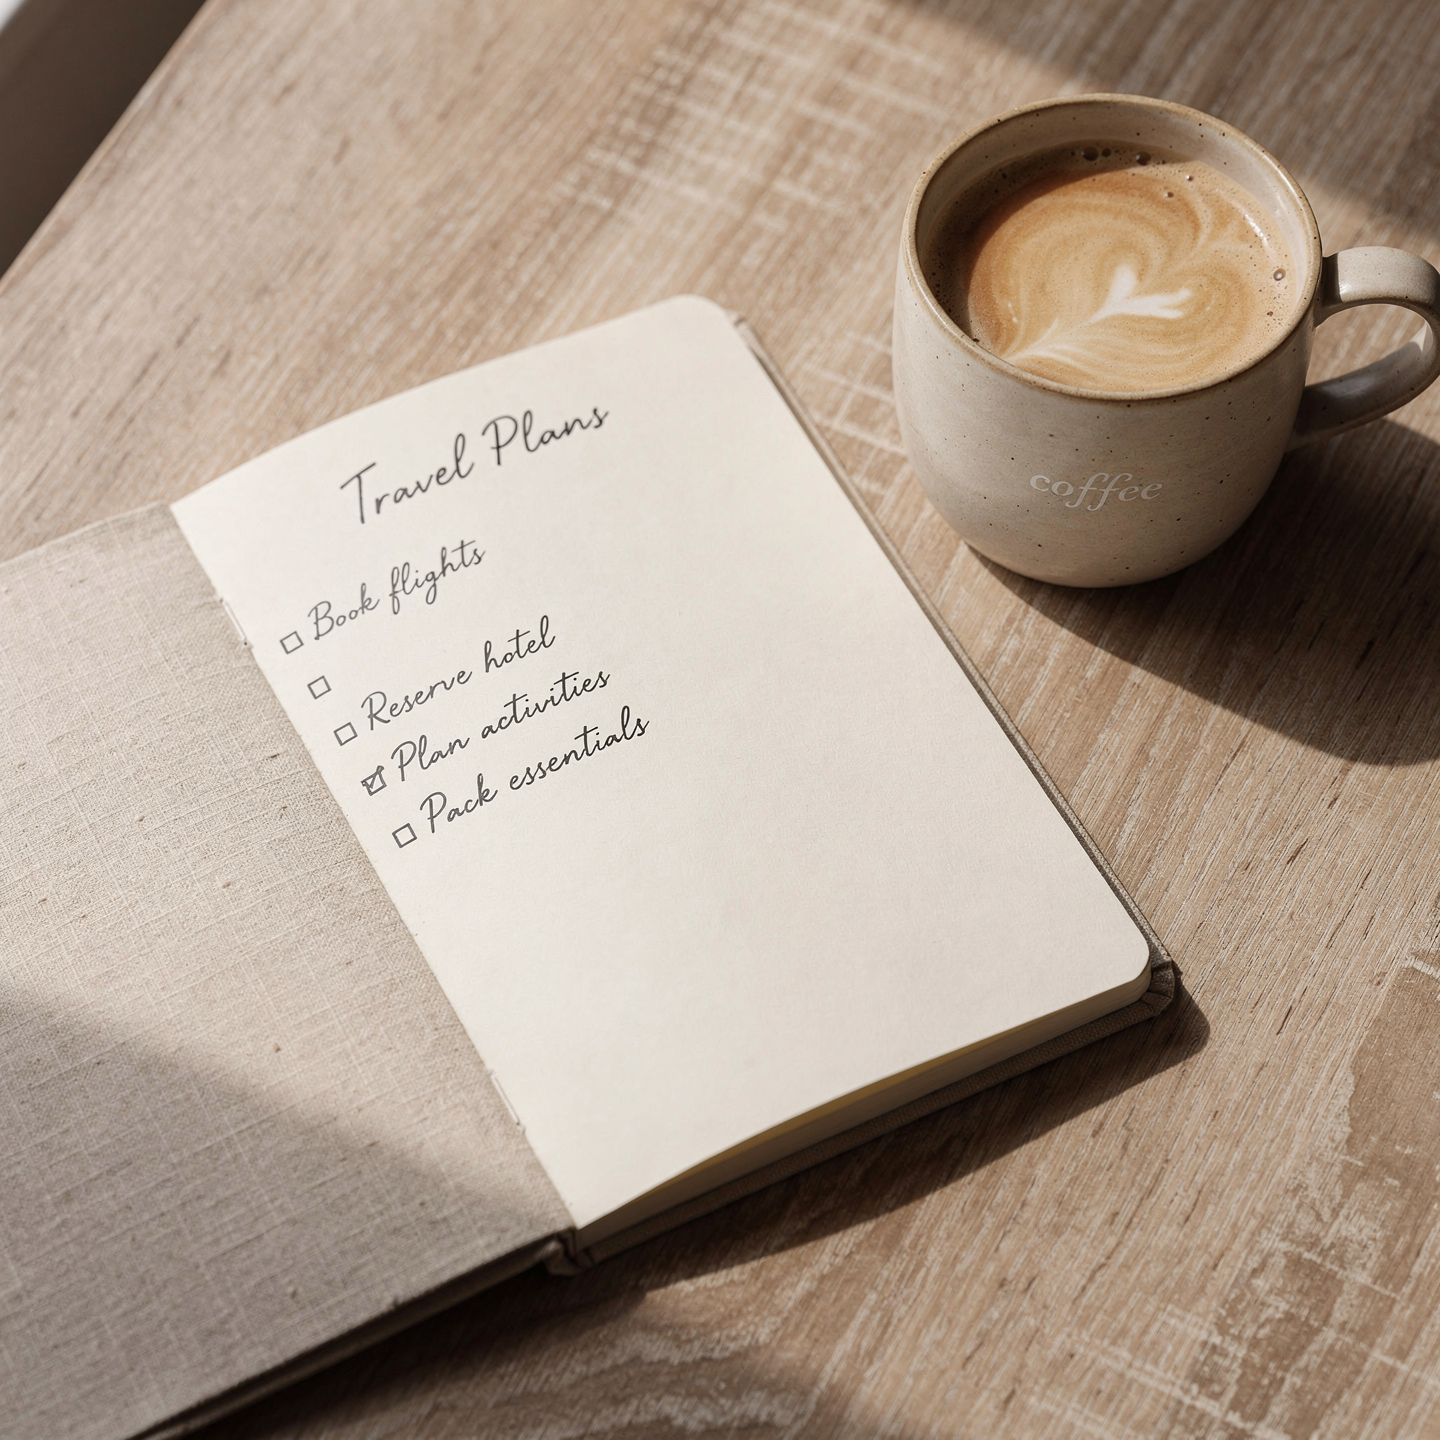 Travel Plans
☐ Book flights
☐
☐ Reserve hotel
☑ Plan activities
☐ Pack essentials
coffee